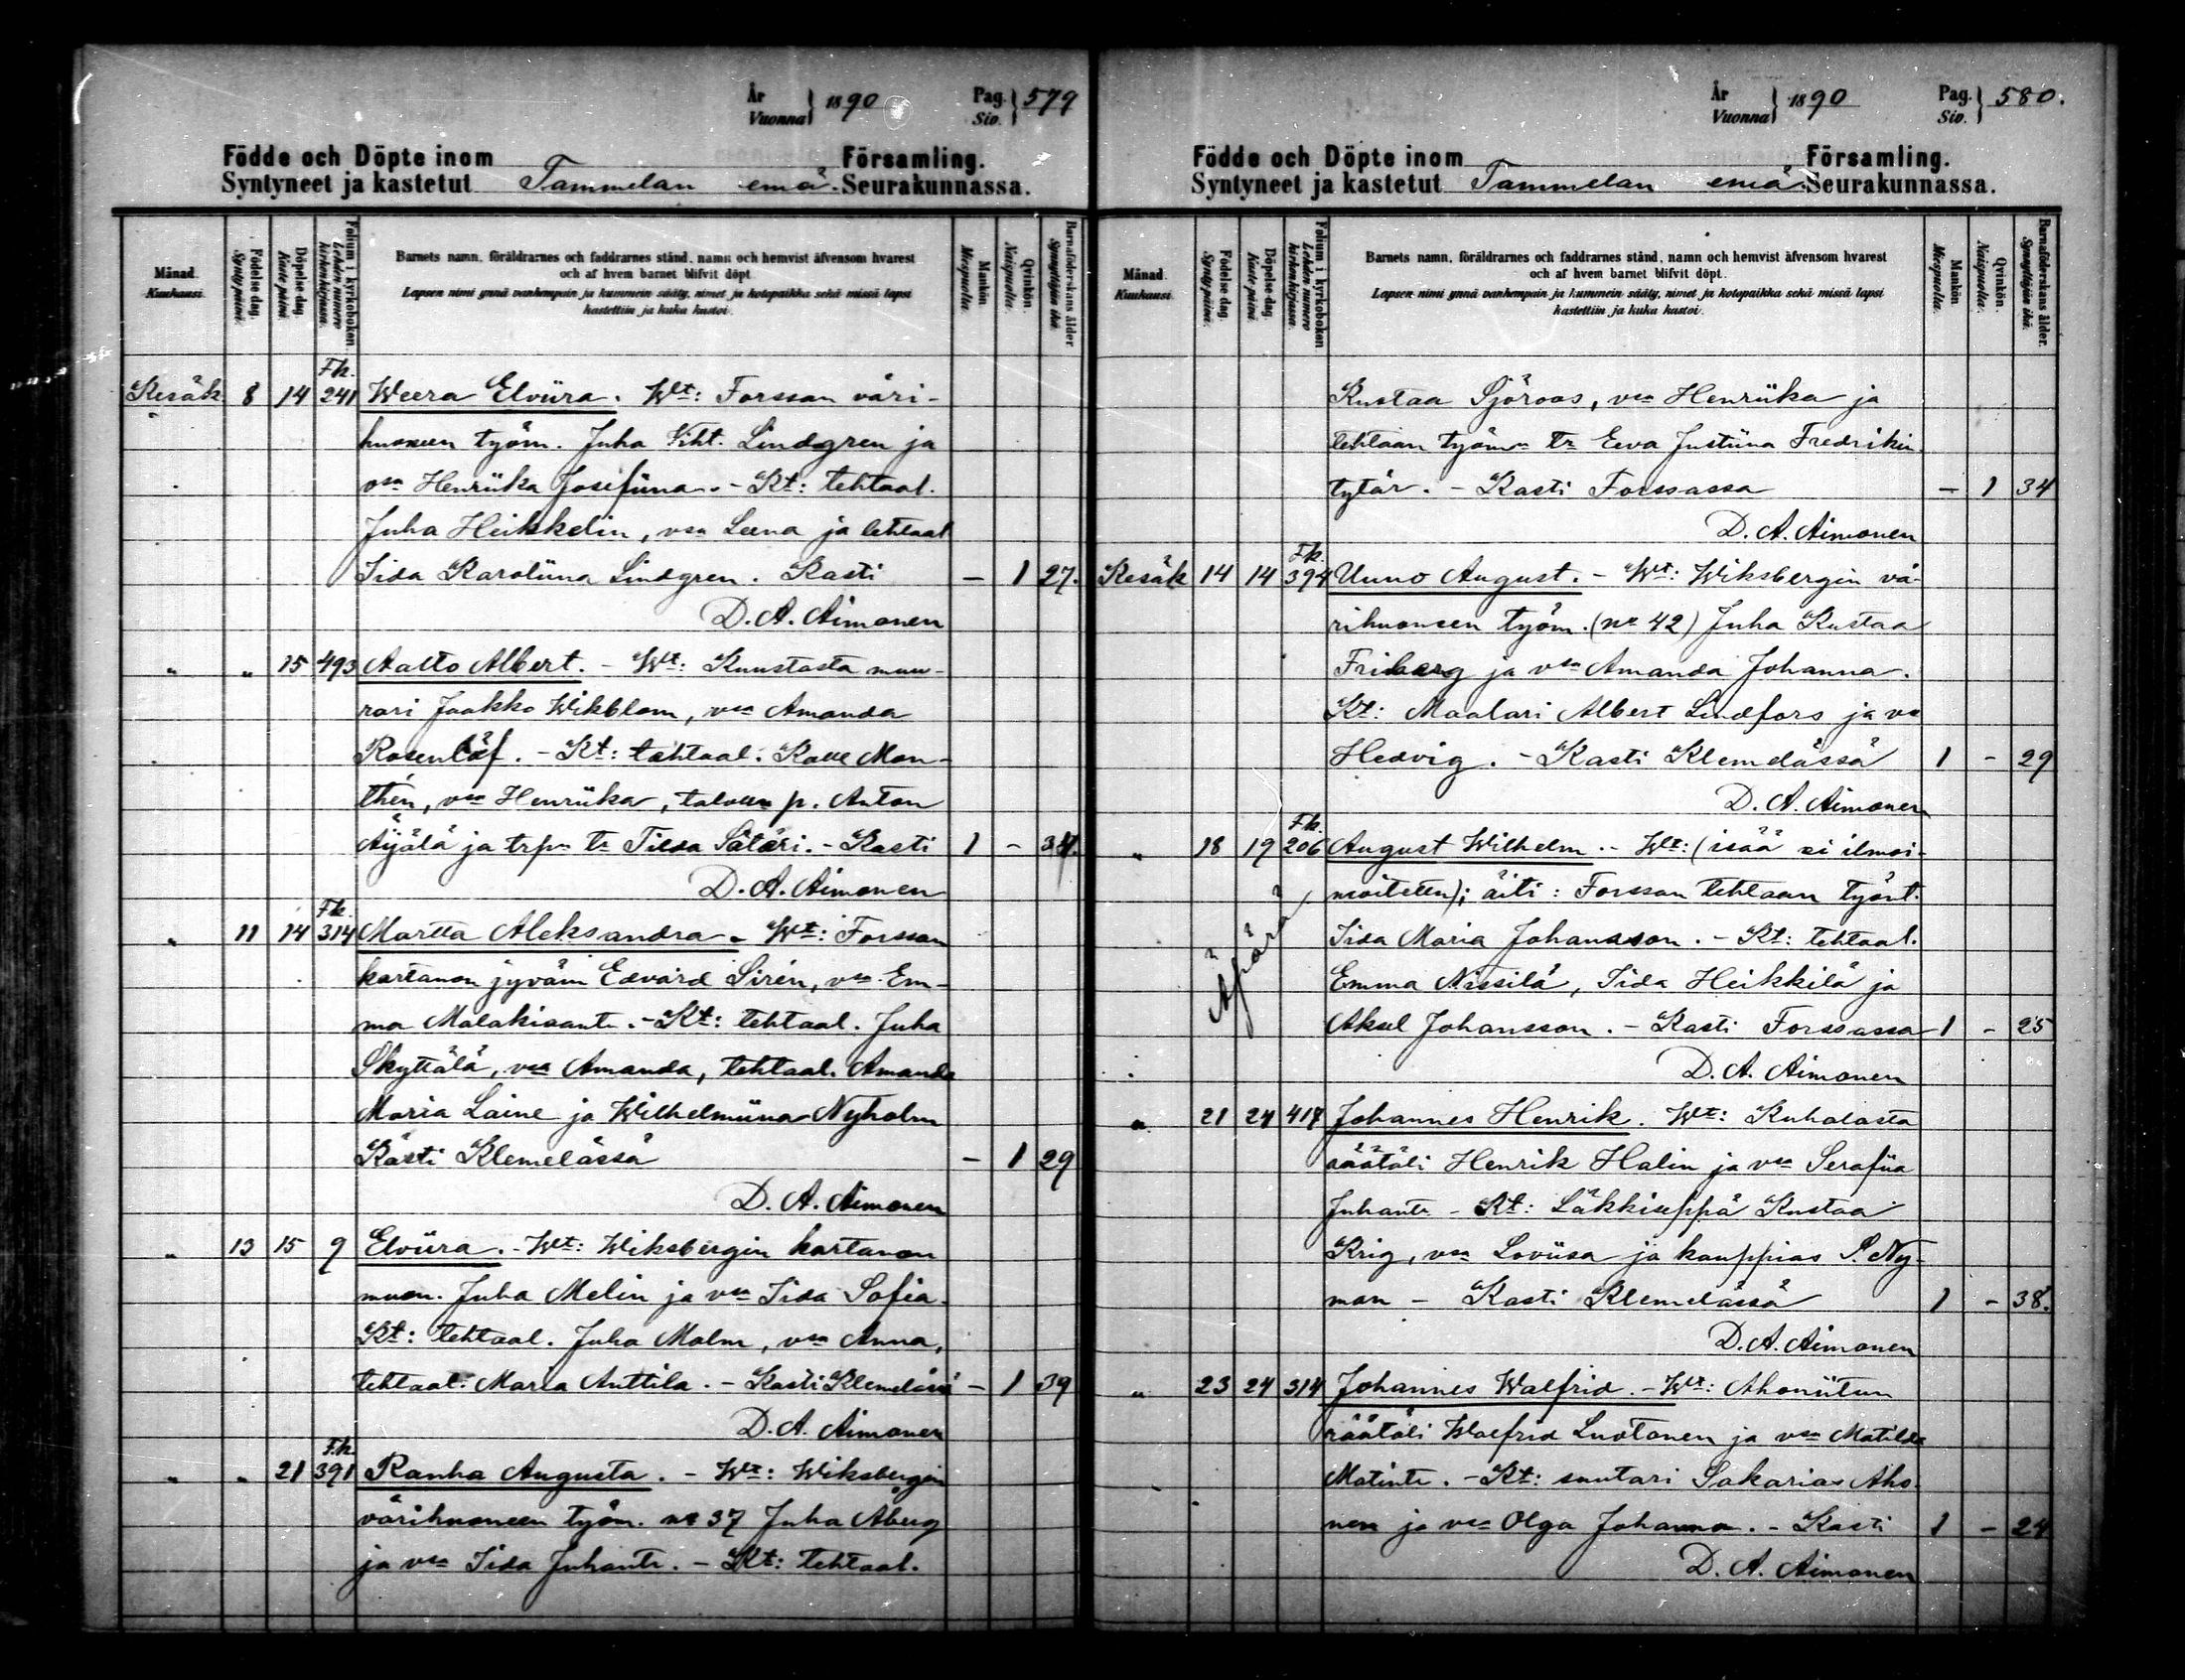 År
Vuonna } 1890 Pag.
Siv. } 579
Födde och Döpte inom
Syntyneet ja kastetut Tammelan emä. Församling.
Seurakunnassa.
Månad.
Kuukausi.
Födelse dag.
Synty päivä.
Döpelse dag.
Kaste päivä
Folium i kyrkoboken
Lehden numero kirkonkirjassa.
Barnets namn, föräldrarnes och faddrarnes stånd, namn och hemvist äfvensom hvarest
och af hvem barnet blifvit döpt.
Lapsen nimi ynnä vanhempain ja kummein sääty, nimet ja kotopaikka sekä missä lapsi
kastettiin ja kuka kastoi.
Mankön
Miespuolta.
Qvinkön.
Naispuolta.
Barnaföderskans ålder
Synnyttäjän ikä.
Fk.
Kesäk. 8 14 241 Weera Elviira. Wt: Forssan väri-
huoneen työm. Juha Viht. Lindgren ja
vsa Henriika Josefiina. - Kt: tehtaal.
Juha Heikkelin, vsa Leena ja tehtaal
Iida Karoliina Lindgren. Kasti - 1 27.
D. A. Aimonen
" " 15 493 Aalto Albert. - Wt: Kuustosta muu-
rari Jaakko Wikblom, vsa Amanda
Rosenlöf. - Kt: tehtaal. Kalle Mon-
thén, vsa Henriika, p. Anton
Äijälä ja trpn tr Tilda Sätäri. - Kasti 1 - 34.
D. A. Aimonen
Fk.
" 11 14 314 Martta Aleksandra. Wt: Forssan
kartanon jyväm Edvard Sirén, vsa Em-
ma Malakiaantr. - Kt: tehtaal. Juha
Skyttälä, vsa Amanda, tehtaal. Amanda
Maria Laine ja Wilhelmiina Nyholm
Kasti Klemelässä - 1 29
D. A. Aimonen
" 13 15 9 Elviira. - Wt: Wiksbergin kartanon
muon. Juha Melin ja vsa Iida Sofia.
Kt: tehtaal. Juha Malm, vsa Anna,
tehtaal. Maria Anttila. - Kasti Klemelässä - 1 39
D. A. Aimonen
Fk.
" " 21 391 Rauha Augusta. - Wt: Wiksbergin
värihuoneen työm. no 37 Juha Åberg
ja vsa Iida Juhantr. - Kt: tehtaal.
År
Vuonna } 1890 Pag.
Siv. } 580.
Födde och Döpte inom
Syntyneet ja kastetut Tammelan emä Församling.
Seurakunnassa.
Månad.
Kuukausi.
Födelse dag.
Synty päivä.
Döpelse dag.
Kaste päivä.
Folium i kyrkoboken
Lehden numero kirkonkirjassa.
Barnets namn, föräldrarnes och faddrarnes stånd, namn och hemvist äfvensom hvarest
och af hvem barnet blifvit döpt.
Lapsen nimi ynnä vanhempain ja kummein sääty, nimet ja kotopaikka sekä missä lapsi
kastettiin ja kuka kastoi.
Mankön
Miespuolta.
Qvinkön.
Naispuolta.
Barnaföderskans ålder.
Synnyttäjän ikä.
Kustaa Sjöroos, vsa Henriika ja
tehtaan työm tr Eeva Justiina Fredrikin
tytär. - Kasti Forssassa - 1 34
D. A. Aimonen
Fk.
Kesäk 14 14 394 Uuno August. - Wt: Wiksbergin vä-
rihuoneen työm. (no 42) Juha Kustaa
Friberg ja vsa Amanda Johanna.
Kt: Maalari Albert Lindfors ja va
Hedvig. - Kasti Klemelässä 1 - 29
D. A. Aimonen
Fk.
" 18 19 206 August Wilhelm. - Wt: (isää ei ilmoi-
moitettu); äiti: Forssan tehtaan työnt.
Äpärä
Iida Maria Johansson. - Kt: tehtaal.
Emma Nissilä, Iida Heikkilä ja
Aksel Johansson. - Kasti Forssassa 1 - 25
D. A. Aimonen
" 21 24 417 Johannes Henrik. Wt: Kuhalasta
räätäli Henrik Halin ja vsa Serafiia
Juhantr - Kt: Läkkiseppä Kustaa
Krig, vsa Loviisa ja kauppias S. Ny-
man - Kasti Klemelässä 1 - 38.
D. A. Aimonen
" 23 24 314 Johannes Walfrid. - Wt: Ahoniitun
räätäli Walfrid Luotonen ja vsa Matilda
Matintr. - Kt: suutari Sakarias Aho-
nen ja vsa Olga Johanna. - Kasti 1 - 24
D. A. Aimonen